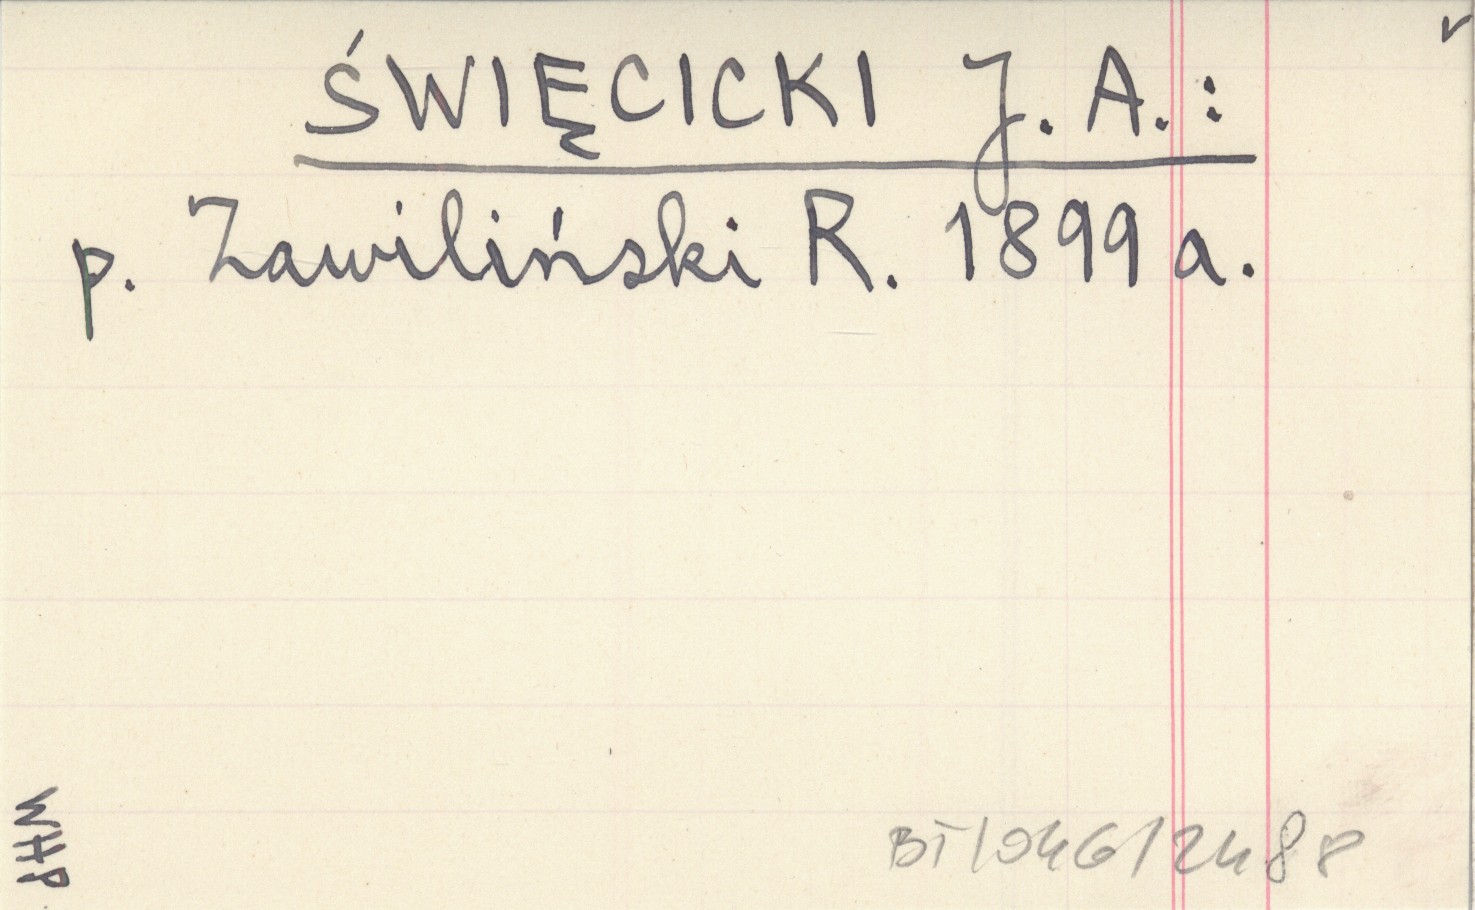 ŚWIĘCICKI J. A.:
p. Zawiliński R. 1899 a.
WHP
BT/046/2488